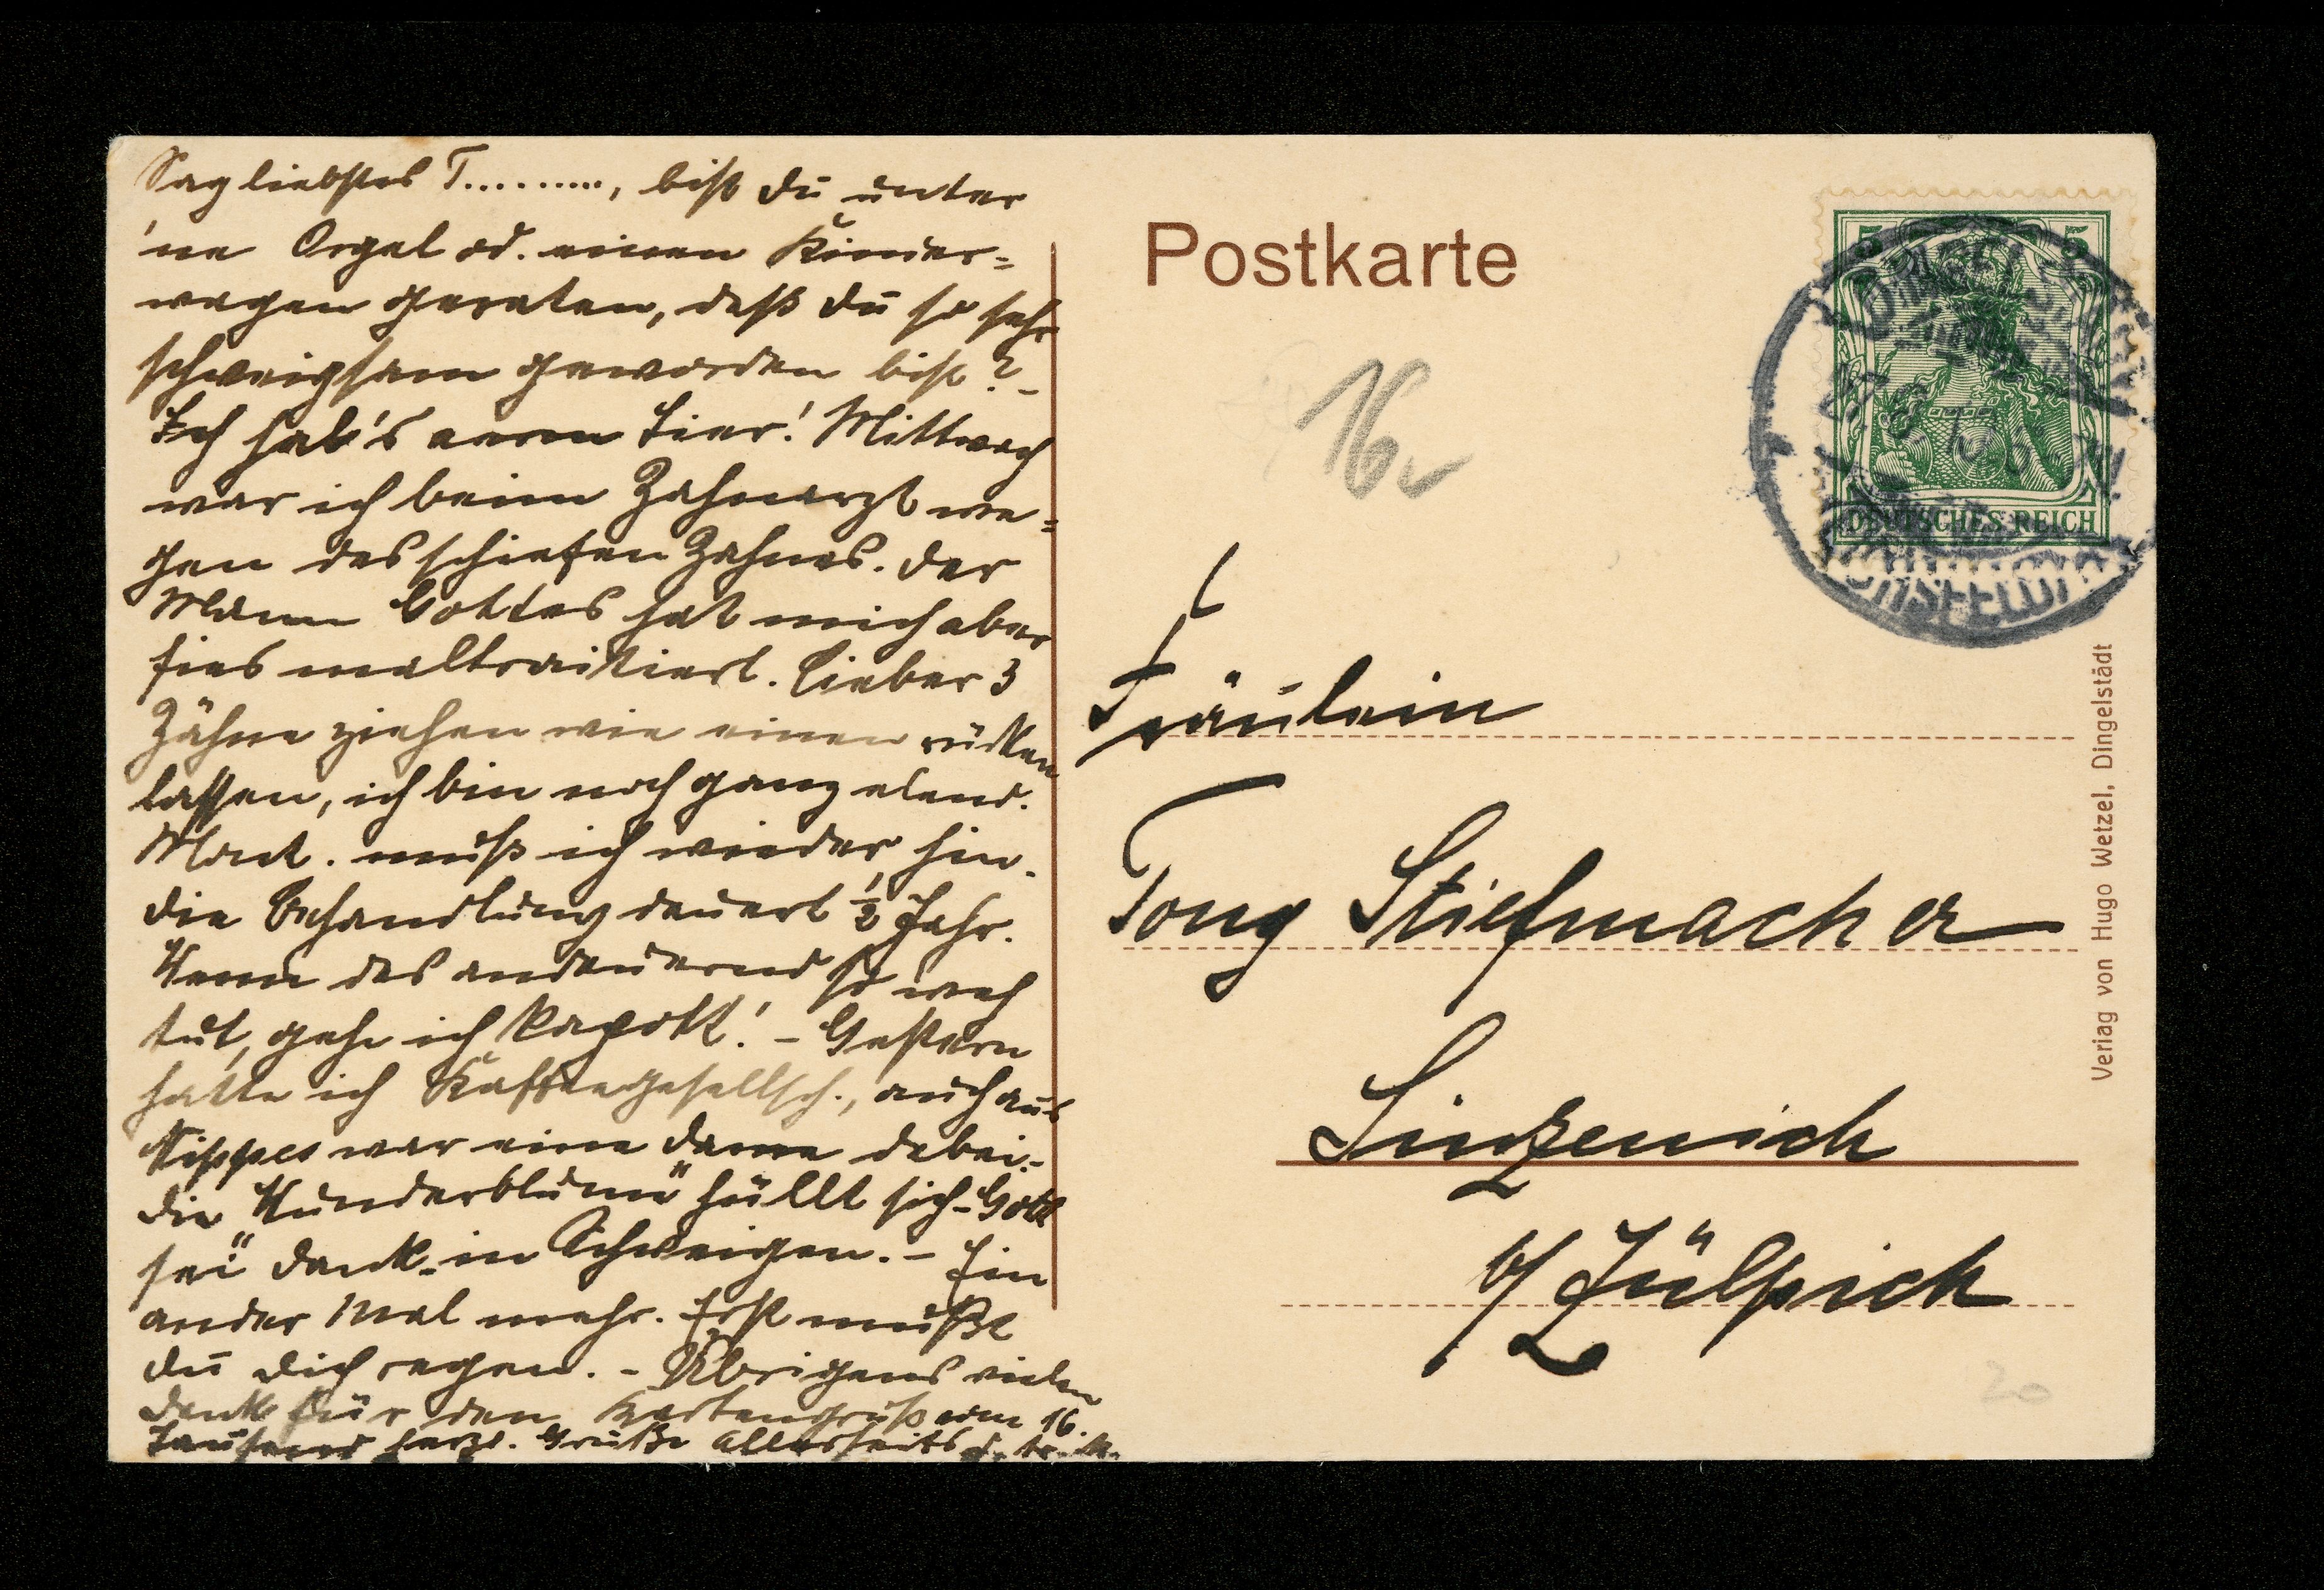 Sag liebstes T........., bist du unter
'ne Orgel od. einen Kinder=
wagen geraten, daß du so sehr
schweigsam geworden bist? -
Ich hab's arm Tier! Mittwoch
war ich beim Zahnarzt we=
gen des schiefen Zahnes. Der
Mann Gottes hat mich aber
fies maltraitiert. Lieber 3
Zähne ziehen wie einen rücken
lassen, ich bin noch ganz elend.
Mont. muß ich wieder hin.
Die Behandlung dauert ½ Jahr.
Wenn das andauernd so weh
tut, gehe ich kapott! - Gestern
hatte ich Kaffeegesellsch., auch aus
Nippes war eine Dame dabei.-
Die "Wunderblume" hüllt sich - Gott
sei Dank - in Schweigen. - Ein
ander Mal mehr. Erst mußt
du dich regen. - Übrigens vielen
Dank für den Kartengruß vom 16.
Tausend herzl. Grüße allerseits
Postkarte
16
5 5
DEUTSCHES REICH
Fräulein
Tony Stiefmacher
Linzenich
b/ Zülpich
20
Verlag von Hugo Wetzel, Dingelstädt